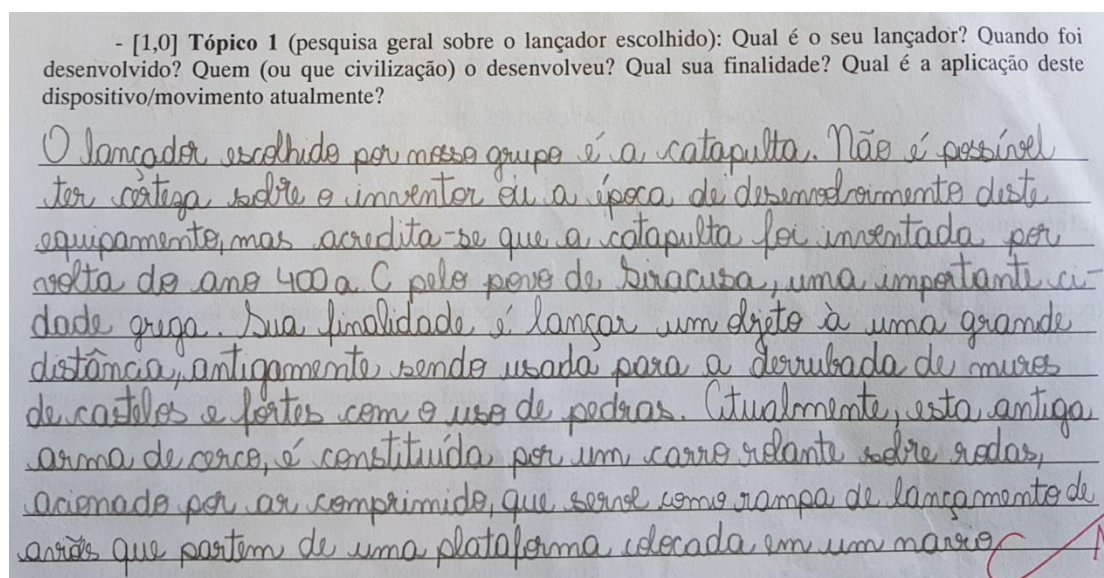 - [1,0] Tópico 1 (pesquisa geral sobre o lançador escolhido): Qual é o seu lançador? Quando foi
desenvolvido? Quem (ou que civilização) o desenvolveu? Qual sua finalidade? Qual é a aplicação deste
dispositivo/movimento atualmente?
O lançador escolhido por nosso grupo é a catapulta. Não é possível
ter certeza sobre o inventor ou a época de desenvolvimento deste
equipamento, mas acredita-se que a catapulta foi inventada por
volta do ano 400 a C pelo povo de Siracusa, uma importante ci-
dade grega. Sua finalidade é lançar um objeto à uma grande
distância, antigamente sendo usada para a derrubada de muros
de castelos e fortes com o uso de pedras. Atualmente, esta antiga
arma de cerco, é constituída por um carro rolante sobre rodas,
acionado por ar comprimido, que serve como rampa de lançamento de
aviões que partem de uma plataforma colocada em um navio